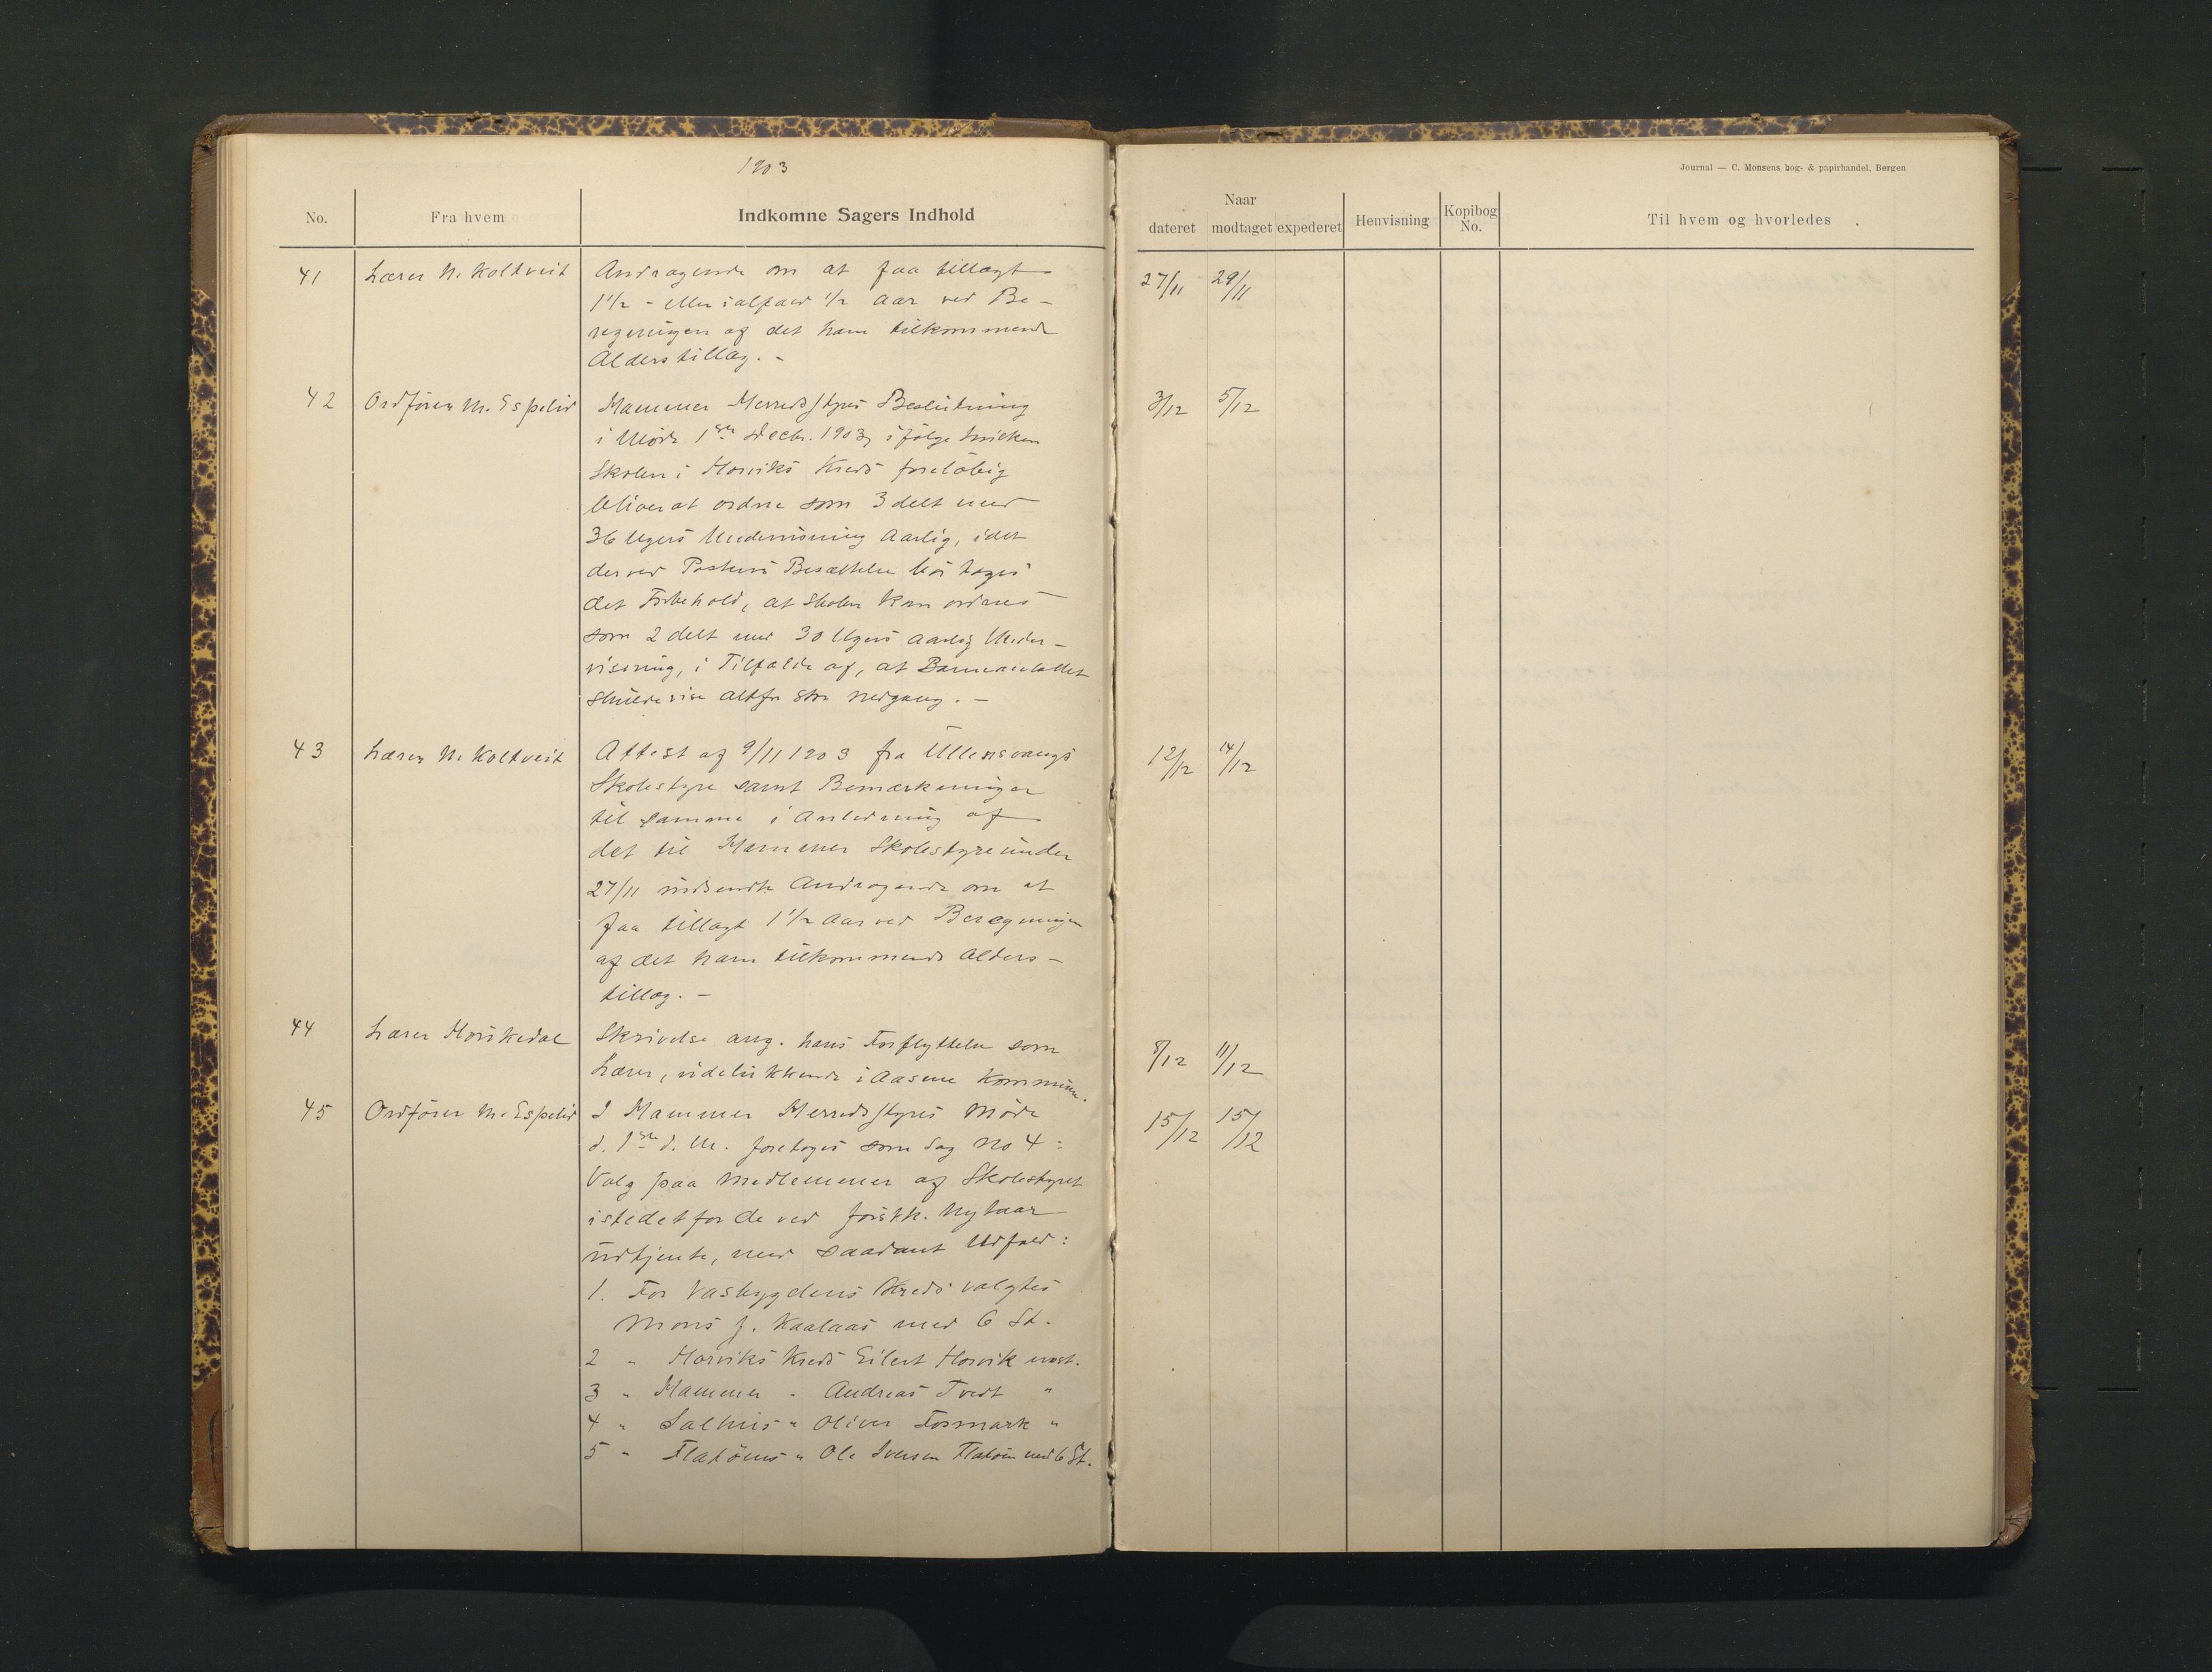 1903
Journal — C. Monsens bog- & papirhandel, Bergen
No.
Fra hvem
Indkomne Sagers Indhold
Naar
dateret
modtaget
expederet
Henvisning
Kopibog No.
Til hvem og hvorledes
41 Lærer N. Koltveit Andragende om at faa tillagt 27/11 29/11
1 1/2 - eller ialfald 1/2 Aar ved Be-
regningen af det ham tilkommende
Alderstillæg. -
42 Ordfører M. Espelid Hammer Herredsstyres Beslutning 3/12 5/12
i Møde 1ste Decbr. 1903, ifølge hvilken
Skolen i Horviks Kreds foreløbig
bliver at ordne som 3 delt med
36 Ugers Undervisning Aarlig, idet
der ved Postens Besættelse bør tages
det Forbehold, at Skolen kan ordnes
som 2 delt med 30 Ugers aarlig Under-
visning, i Tilfælde af, at Barneantallet
skulde vise altfor stor Nedgang. -
43 Lærer N. Koltveit Attest af 9/11 1903 fra Ullensvangs 12/12 14/12
Skolestyre samt Bemærkninger
til samme i Anledning af
det til Hammer Skolestyre under
27/11 indsendte Andragende om at
faa tillagt 1 1/2 Aar ved Beregningen
af det ham tilkommende Alders-
tillæg. -
44 Lærer Horskedal Skrivelse ang. hans Forflyttelse som 8/12 11/12
Lærer, udelukkende i Aasene Kommune.
45 Ordfører M. Espelid I Hammer Herredsstyres Møde 15/12 15/12
d. 1ste d. M. foretoges som Sag No 4:
Valg paa Medlemmer af Skolestyret
istedetfor de ved førstk. Nytaar
udtjente, med saadant Udfald:
1. For Vasbygdens Kreds valgtes
Mons J. Kaalaas med 6 St.
2 " Horviks Kreds Eilert Horvik
3 " Hammer " Andreas Tvedt "
4 " Salhus " Oliver Formark "
5 " Flatøens " Ole Iversen Flatøen med 6 St.